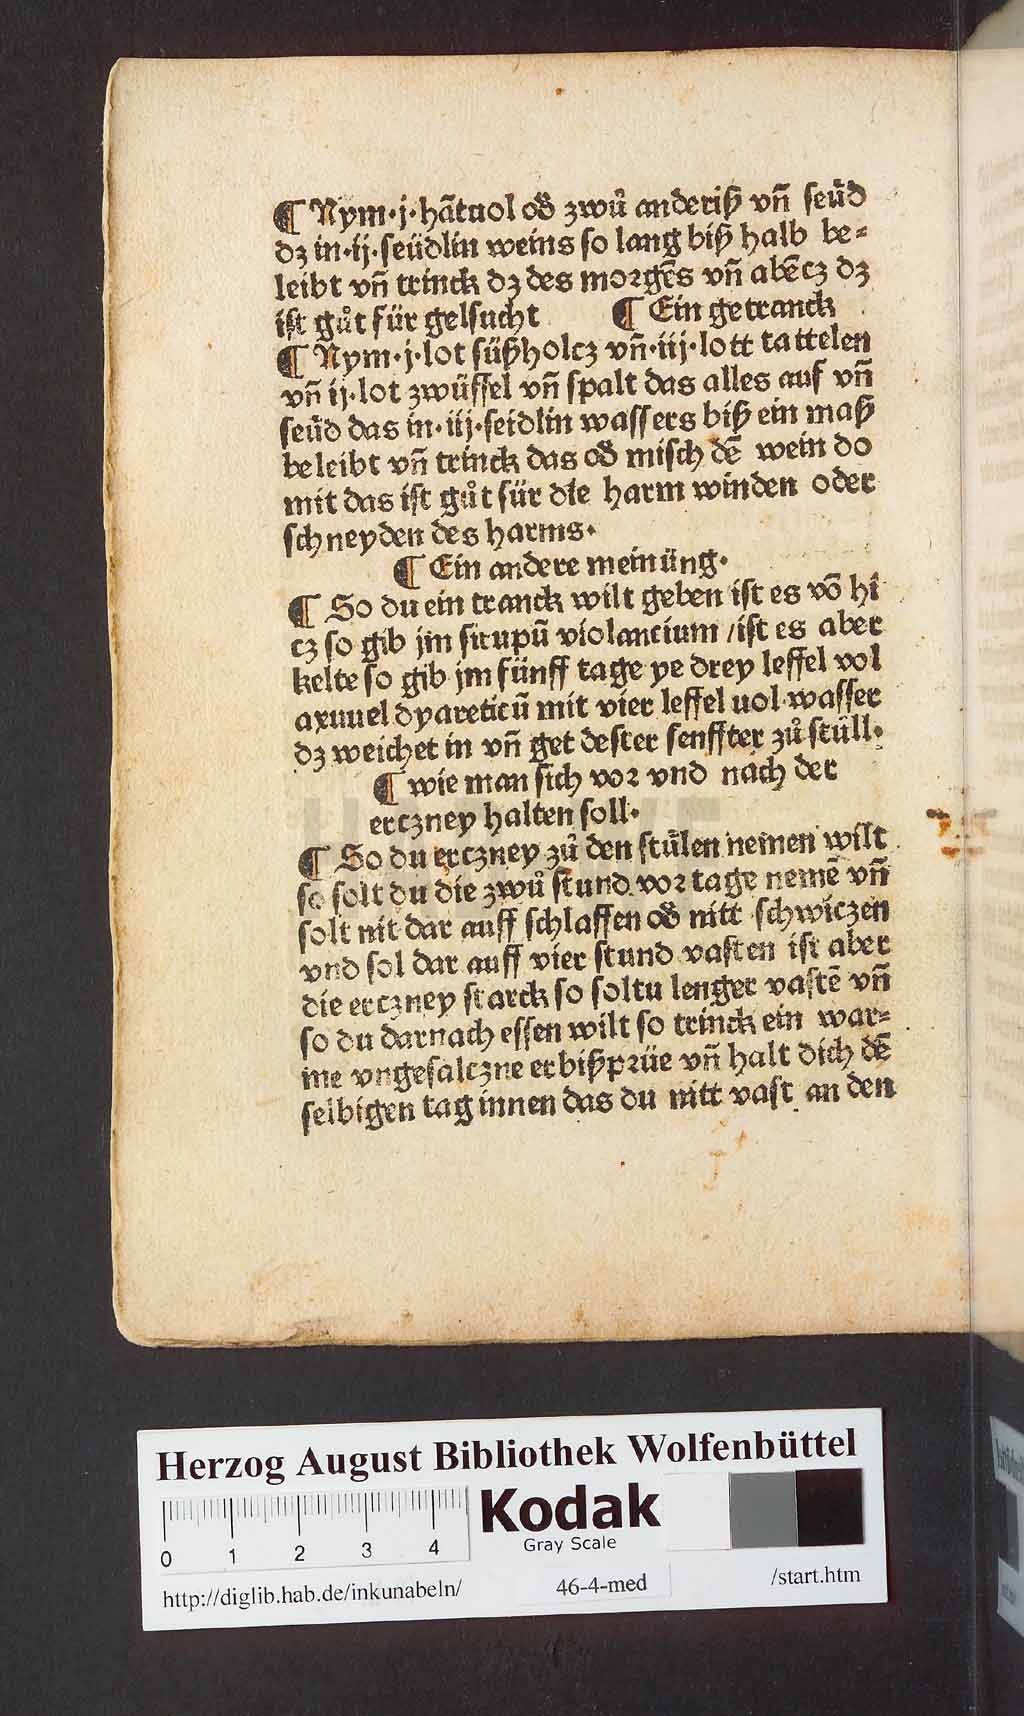 ¶ Nym·j·hãtuol od̃ zwů anderiß vñ seu̇d
dz in·ij·seüdlin weins so lang biß halb be⸗
leibt vñ trinck dz des morgẽs vñ abẽcz dz
ist gůt für gelsucht ¶ Ein getranck
¶ Nym·j·lot süßholcz vñ·iij·lott tattelen
vñ ij·lot zwüffel vñ spalt das alles auf vñ
seu̇d das in·iij·seidlin wassers biß ein maß
beleibt vñ trinck das od̃ misch dẽ wein do
mit das ist gůt für die harm winden oder
schneyden des harms·
¶ Ein andere meinüng·
¶ So du ein tranck wilt geben ist es võ hi
cz so gib jm sirupũ violancium / ist es aber
kelte so gib jm fünff tage ye drey leffel vol
axuuel dyareticũ mit vier leffel uol wasser
dz weichet in vñ get dester senffter zů stüll·
¶ wie man sich vor vnd nach der
erczney halten soll·
¶ So du erczney zů den stülen nemen wilt
so solt du die zwů stund vor tage nemẽ vñ
solt nit dar auff schlaffen od̃ nitt schwiczen
vnd sol dar auff vier stund vasten ist aber
die erczney starck so soltu lenger vastẽ vñ
so du darnach essen wilt so trinck ein war⸗
me vngesalczne erbißprüe vñ halt dich dẽ
selbigen tag innen das du nitt vast an den
Herzog August Bibliothek Wolfenbüttel
0 1 2 3 4
Kodak
Gray Scale
http://diglib.hab.de/inkunabeln/ 46-4-med /start.htm